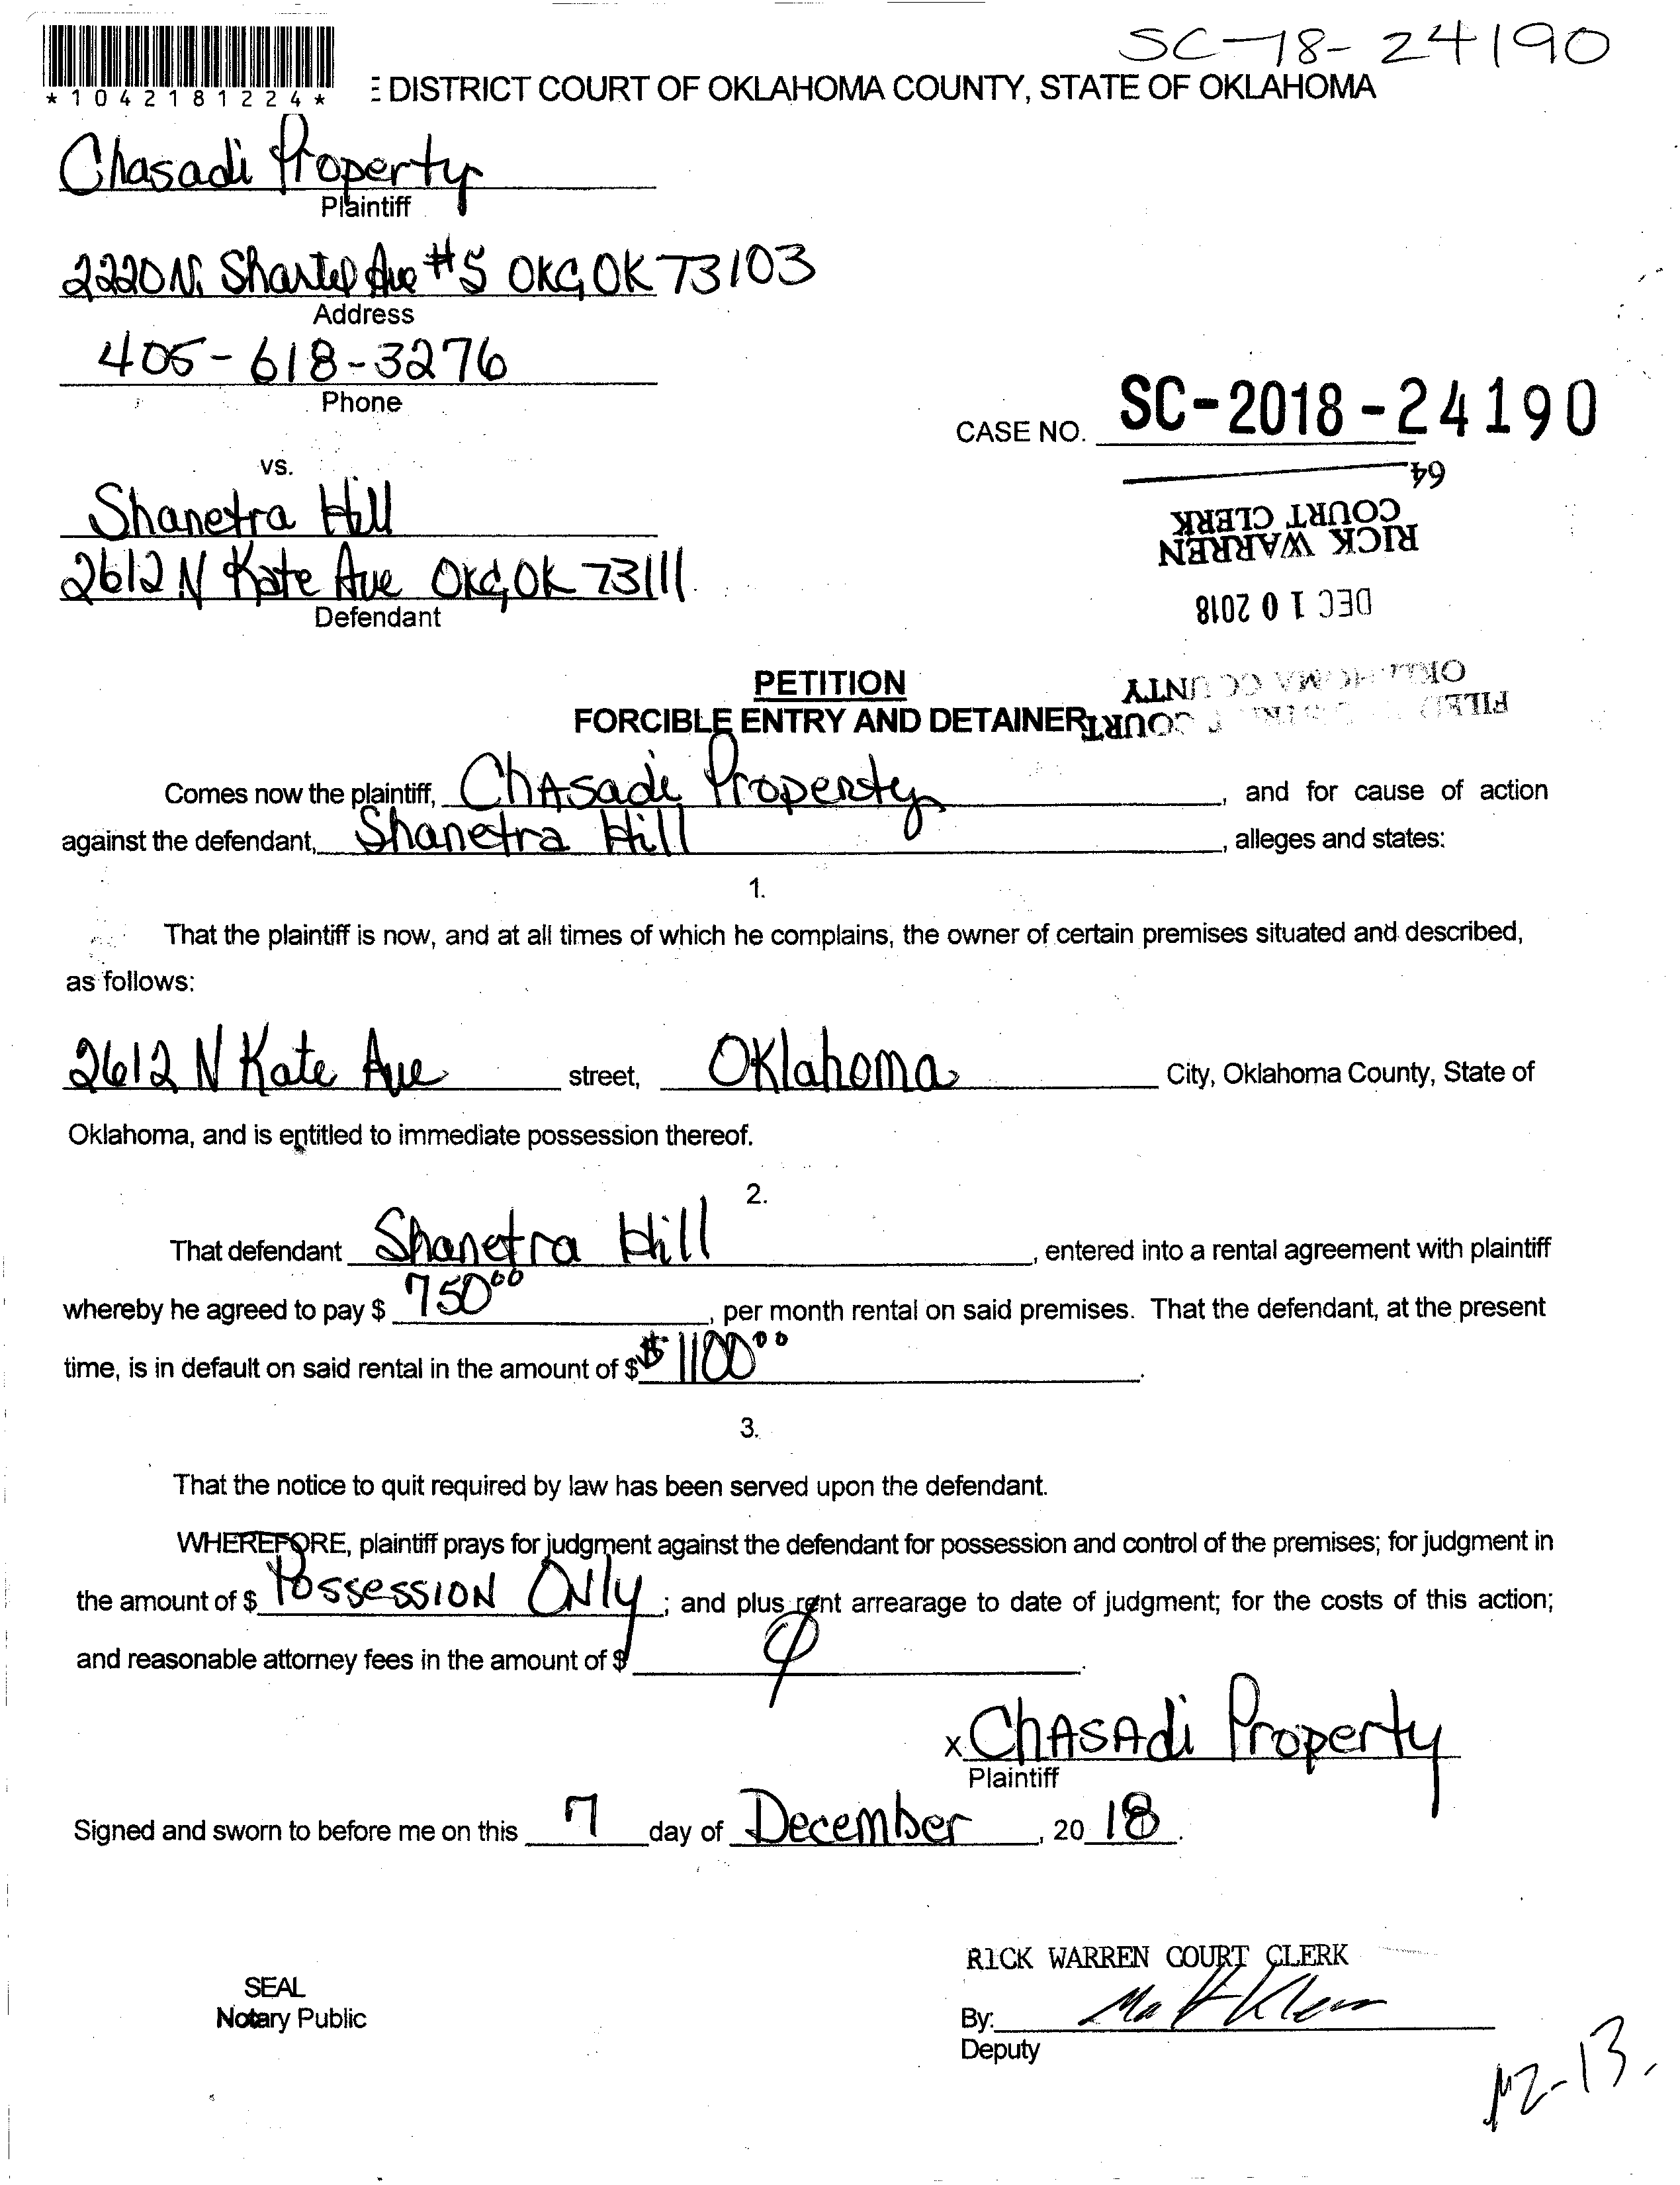 SC-18-24190
*1042181224*
E DISTRICT COURT OF OKLAHOMA COUNTY, STATE OF OKLAHOMA
Chasadi Property
Plaintiff
2220 N. Shartel Ave #5 OKC, OK 73103
Address
405-618-3276
Phone
CASE NO. SC-2018-24190
vs.
64
RICK WARREN
COURT CLERK
Shanetra Hill
2612 N Kate Ave OKC, OK 73111
Defendant
DEC 10 2018
OKLAHOMA COUNTY
PETITION
FILED COURT
FORCIBLE ENTRY AND DETAINER
Comes now the plaintiff, ChAsadi Property, and for cause of action
against the defendant, Shanetra Hill, alleges and states:
1.
That the plaintiff is now, and at all times of which he complains, the owner of certain premises situated and described,
as follows:
2612 N Kate Ave street, Oklahoma City, Oklahoma County, State of
Oklahoma, and is entitled to immediate possession thereof.
2.
That defendant Shanetra Hill, entered into a rental agreement with plaintiff
whereby he agreed to pay $ 750⁰⁰, per month rental on said premises. That the defendant, at the present
time, is in default on said rental in the amount of $ $1100⁰⁰.
3.
That the notice to quit required by law has been served upon the defendant.
WHEREFORE, plaintiff prays for judgment against the defendant for possession and control of the premises; for judgment in
the amount of $ Possession Only; and plus rent arrearage to date of judgment; for the costs of this action;
and reasonable attorney fees in the amount of $ φ.
x ChAsAdi Property
Plaintiff
Signed and sworn to before me on this 7 day of December, 2018.
RICK WARREN COURT CLERK
SEAL
Notary Public
By: Matt Klem
Deputy
12-13.